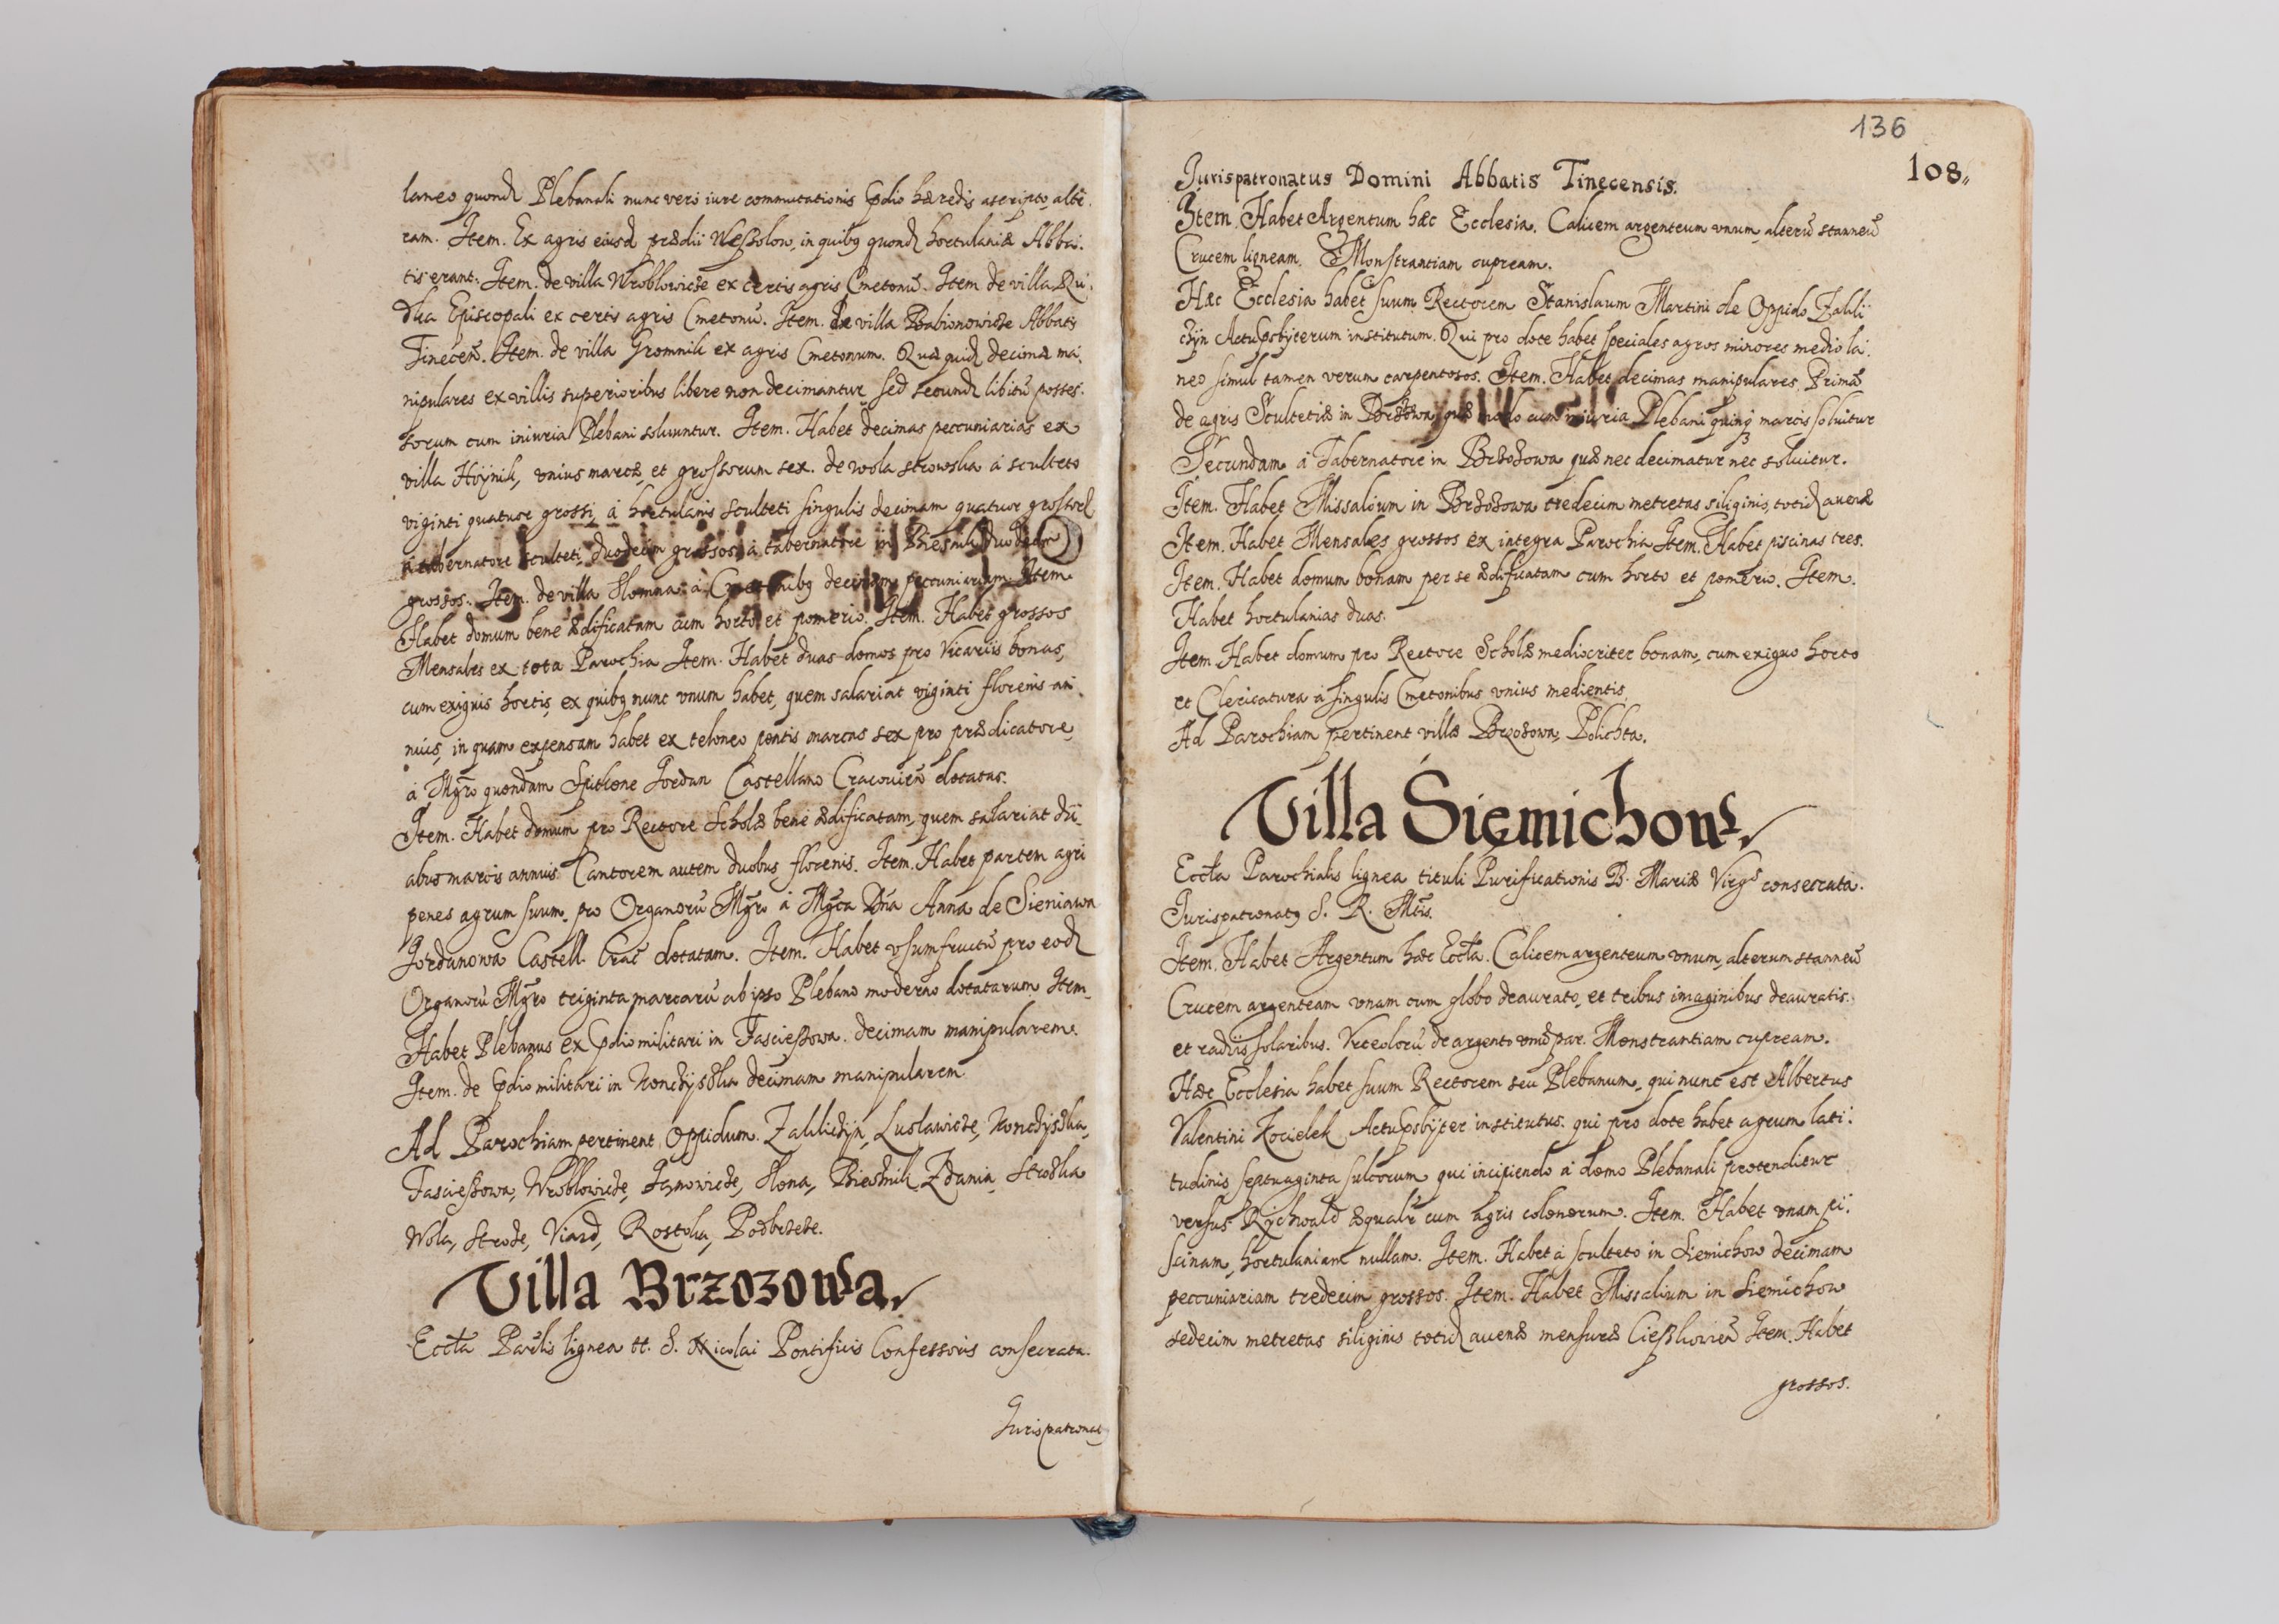 laneo quond Plebanali nunc vero iure commutationis Pdio hæredis ascripto, alte.
ram. Item. Ex agris eiusd prædii Wesszolow, in quibq quond hortulaniæ Abba.
tis erant. Item. de villa Wroblowicze ex certis agris Cmetonū. Item de villa Ru.
dka Episcopali ex certis agris Cmetonū. Item. De villa Babionowicze Abbatis
Tinecen̄. Item. de villa Gromnik ex agris Cmetonum. Quæ quid decimæ ma.
nipulares ex villis superioribus libere non decimantur sed secund libitū posses.
sorum cum iniuria Plebani soluuntur. Item. Habet decimas peccuniarias ex
villa Hoÿnik, vnius marcæ, et grossorum sex. de wola strowska à sculteto
viginti quatuor grossi, á hortulanis sculteti singulis decimam quatuor grossor
à tabernatore sculteti, duodecim grossos, à tabernatore in Biesnik duodecim
grossos. Item. de villa Slomna à Cmetonibq decimam peccuniariam. Item
Habet domum bene ædificatam cum horto et pomerio. Item. Habet grossos
Mensales ex tota Parochia Item. Habet duas domos pro Vicariis bonas,
cum exiguis hortis, ex quibq nunc vnum habet, quem salariat viginti florenis an.
nuis, in quam expensam habet ex teloneo pontis marcas sex pro prædicatore,
à Mgro quondam Spitkone Jordan Castellano Cracouien̄ dotatas.
Item. Habet domum pro Rectore Scholæ bene ædificatam, quem salariat du.
abus marcis annuis Cantorem autem duobus florenis. Item. Habet partem agri
penes agrum suum pro Organorū Mgro á Mgca Dna Anna de Sieniawa
Jordanowa Castell. Crac dotatam. Item. Habet vsumfructū pro eod
Organorū Mgro triginta marcarū ab ipso Plebano moderno dotatarum Item.
Habet Plebanus ex Pdio militari in Fascieszowa. decimam manipularem.
Item. de Pdio militari in Konczÿska decimam manipularem
Ad Parochiam pertinent Oppidum. Zakliczÿn, Luslawicze, Konczÿska,
Fascieszowa, Wroblowicze, Janowicze, Slona, Biesnik, Zdania, Stroska
Wola, Stroze, Viazd, Rostoka, Podbrzeze.
Villa Brzozowa.
Eccła Parlis lignea tt. S. Nicolai Pontificis Confessoris consecrata.
Jurispatronat
136
108
Jurispatronatus Domini Abbatis Tinecensis.
Item. Habet Argentum hæc Ecclesia. Calicem argenteum vnum, alterū stanneū
Crucem ligneam. Monstrantiam cupream.
Hæc Ecclesia habet suum Rectorem Stanislaum Martini de Oppido Zakli
czÿn ActuPsbÿterum institutum. Qui pro dote habet speciales agros minores medio la.
neo simul tamen verum carpentosos. Item. Habet decimas manipulares. Primā
de agris Scultetiæ in Brzozowa, quæ modo cum iniuria Plebani quinq marcis soluitur
Secundam à Tabernatore in Brzozowa quæ nec decimatur nec soluitur.
Item. Habet Missalium in Brzozowa tredecim metretas siliginis, totid auenæ
Item. Habet Mensales grossos ex integra Parochia Item. Habet piscinas tres.
Item. Habet domum bonam per se ædificatam cum horto et pomerio. Item.
Habet hortulanias duas.
Item Habet domum pro Rectore Scholæ mediocriter bonam, cum exiguo horto
et Clericatura à singulis Cmetonibus vnius medientis
Ad Parochiam pertinent villæ Brzozowa, Polichta.
Villa Siemichow.
Eccła Parochialis lignea tituli Purificationis B. Mariæ Virgs consecrata.
Jurispatronatq S. R. Mtis.
Item. Habet Argentum hæc Eccła. Calicem argenteum vnum, alterum stanneū
Crucem argenteam vnam cum globo deaurato, et tribus imaginibus deauratis.
et radiis solaribus. Vrceolorū de argento vnū par. Monstrantiam cupream.
Hæc Ecclesia habet suum Rectorem seu Plebanum, qui nunc est Albertus
Valentini Kocielek ActuPsbÿter institutus. qui pro dote habet agrum lati.
tudinis septuaginta sulcorum qui incipiendo à domo Plebanali protenditur
versus Rÿchwald æqualr cum agris colonorum. Item. Habet vnam pi.
scinam, hortulaniam nullam. Item. Habet à sculteto in Siemichow decimam
peccuniariam tredecim grossos. Item. Habet Missalium in Siemichow
sedecim metretas siliginis totid auenæ mensuræ Cieszkouien̄ Item. Habet
grossos.